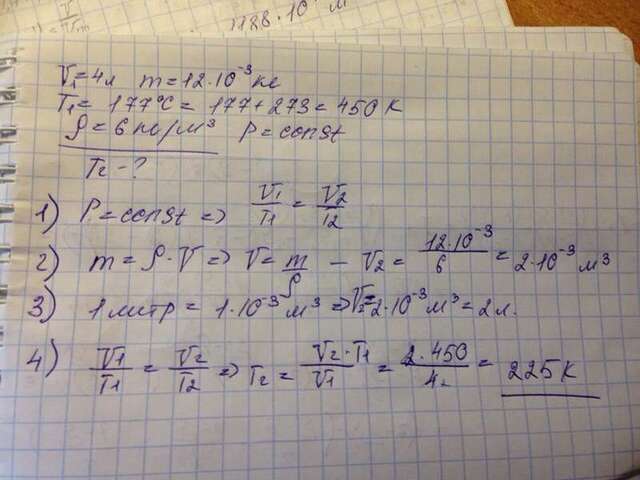 1188 · 10 м
V₁=4л m=12·10⁻³кг
T₁= 177°C = 177+273 = 450 K
ρ=6 кг/м³ P=const
T₂ - ?
1) P=const => V₁/T₁ = V₂/T2
2) m = ρ·V => V = m/ρ - V₂ = 12·10⁻³/6 = 2·10⁻³м³
3) 1 литр = 1·10⁻³м³ => V₂=2·10⁻³м³ = 2л.
4) V₁/T₁ = V₂/T₂ => T₂ = V₂·T₁/V₁ = 2·450/4 = 225K